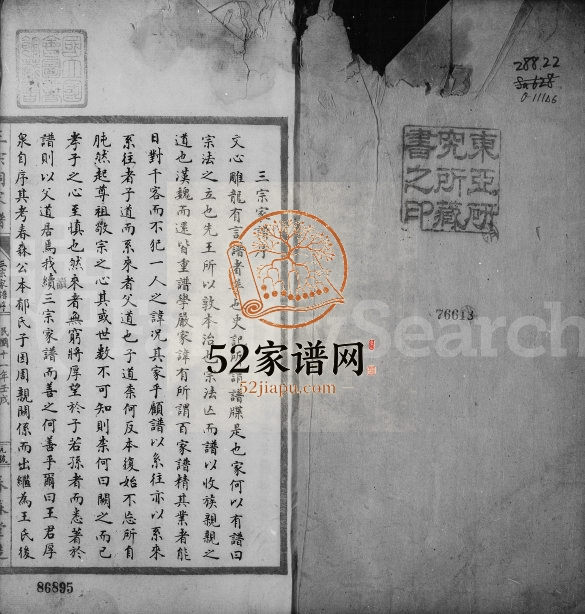 288.22
東亞所
究所藏
書之印
76613
三宗家譜序
文心雕龍有言譜者普也史記所謂譜牒是也家何以有譜曰
宗法之立也先王所以敦本治也宗法亡而譜以收族親親之
道也漢魏而還皆重譜學嚴家諱有所謂百家譜精其業者能
日對千客而不犯一人之諱況其家乎顧譜以系往亦以系來
系往者子道而系來者父道也子道柰何反本復始不忘所自
肫然起尊祖敬宗之心其或世數不可知則柰何曰闕之而已
孝子之心至慎也然來者無窮將厚望於子若孫者而悉著於
譜則以父道居焉我續三宗家譜而善之何善乎爾曰王君厚
泉自序其考春森公本郁氏子因周親關係而出繼為王氏後
三宗家譜序
民國十一年壬戌
52家谱网
52jiapu.com
MySearch
86895